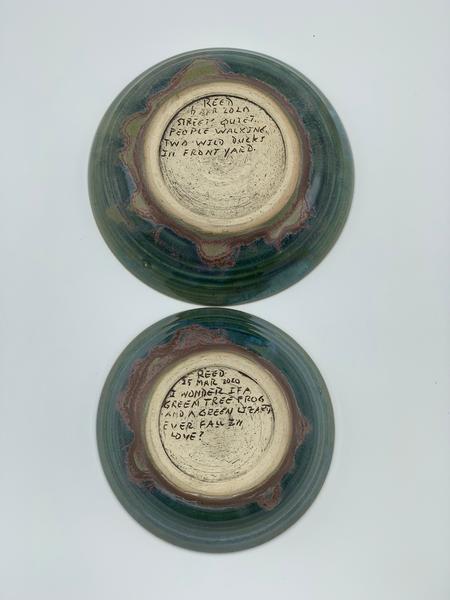 REED
6 APR 2020
STREETS QUIET.
PEOPLE WALKING.
TWO WILD DUCKS
IN FRONT YARD.
REED
25 MAR 2020
I WONDER IF A
GREEN TREE FROG
AND A GREEN LIZARD
EVER FALL IN
LOVE?